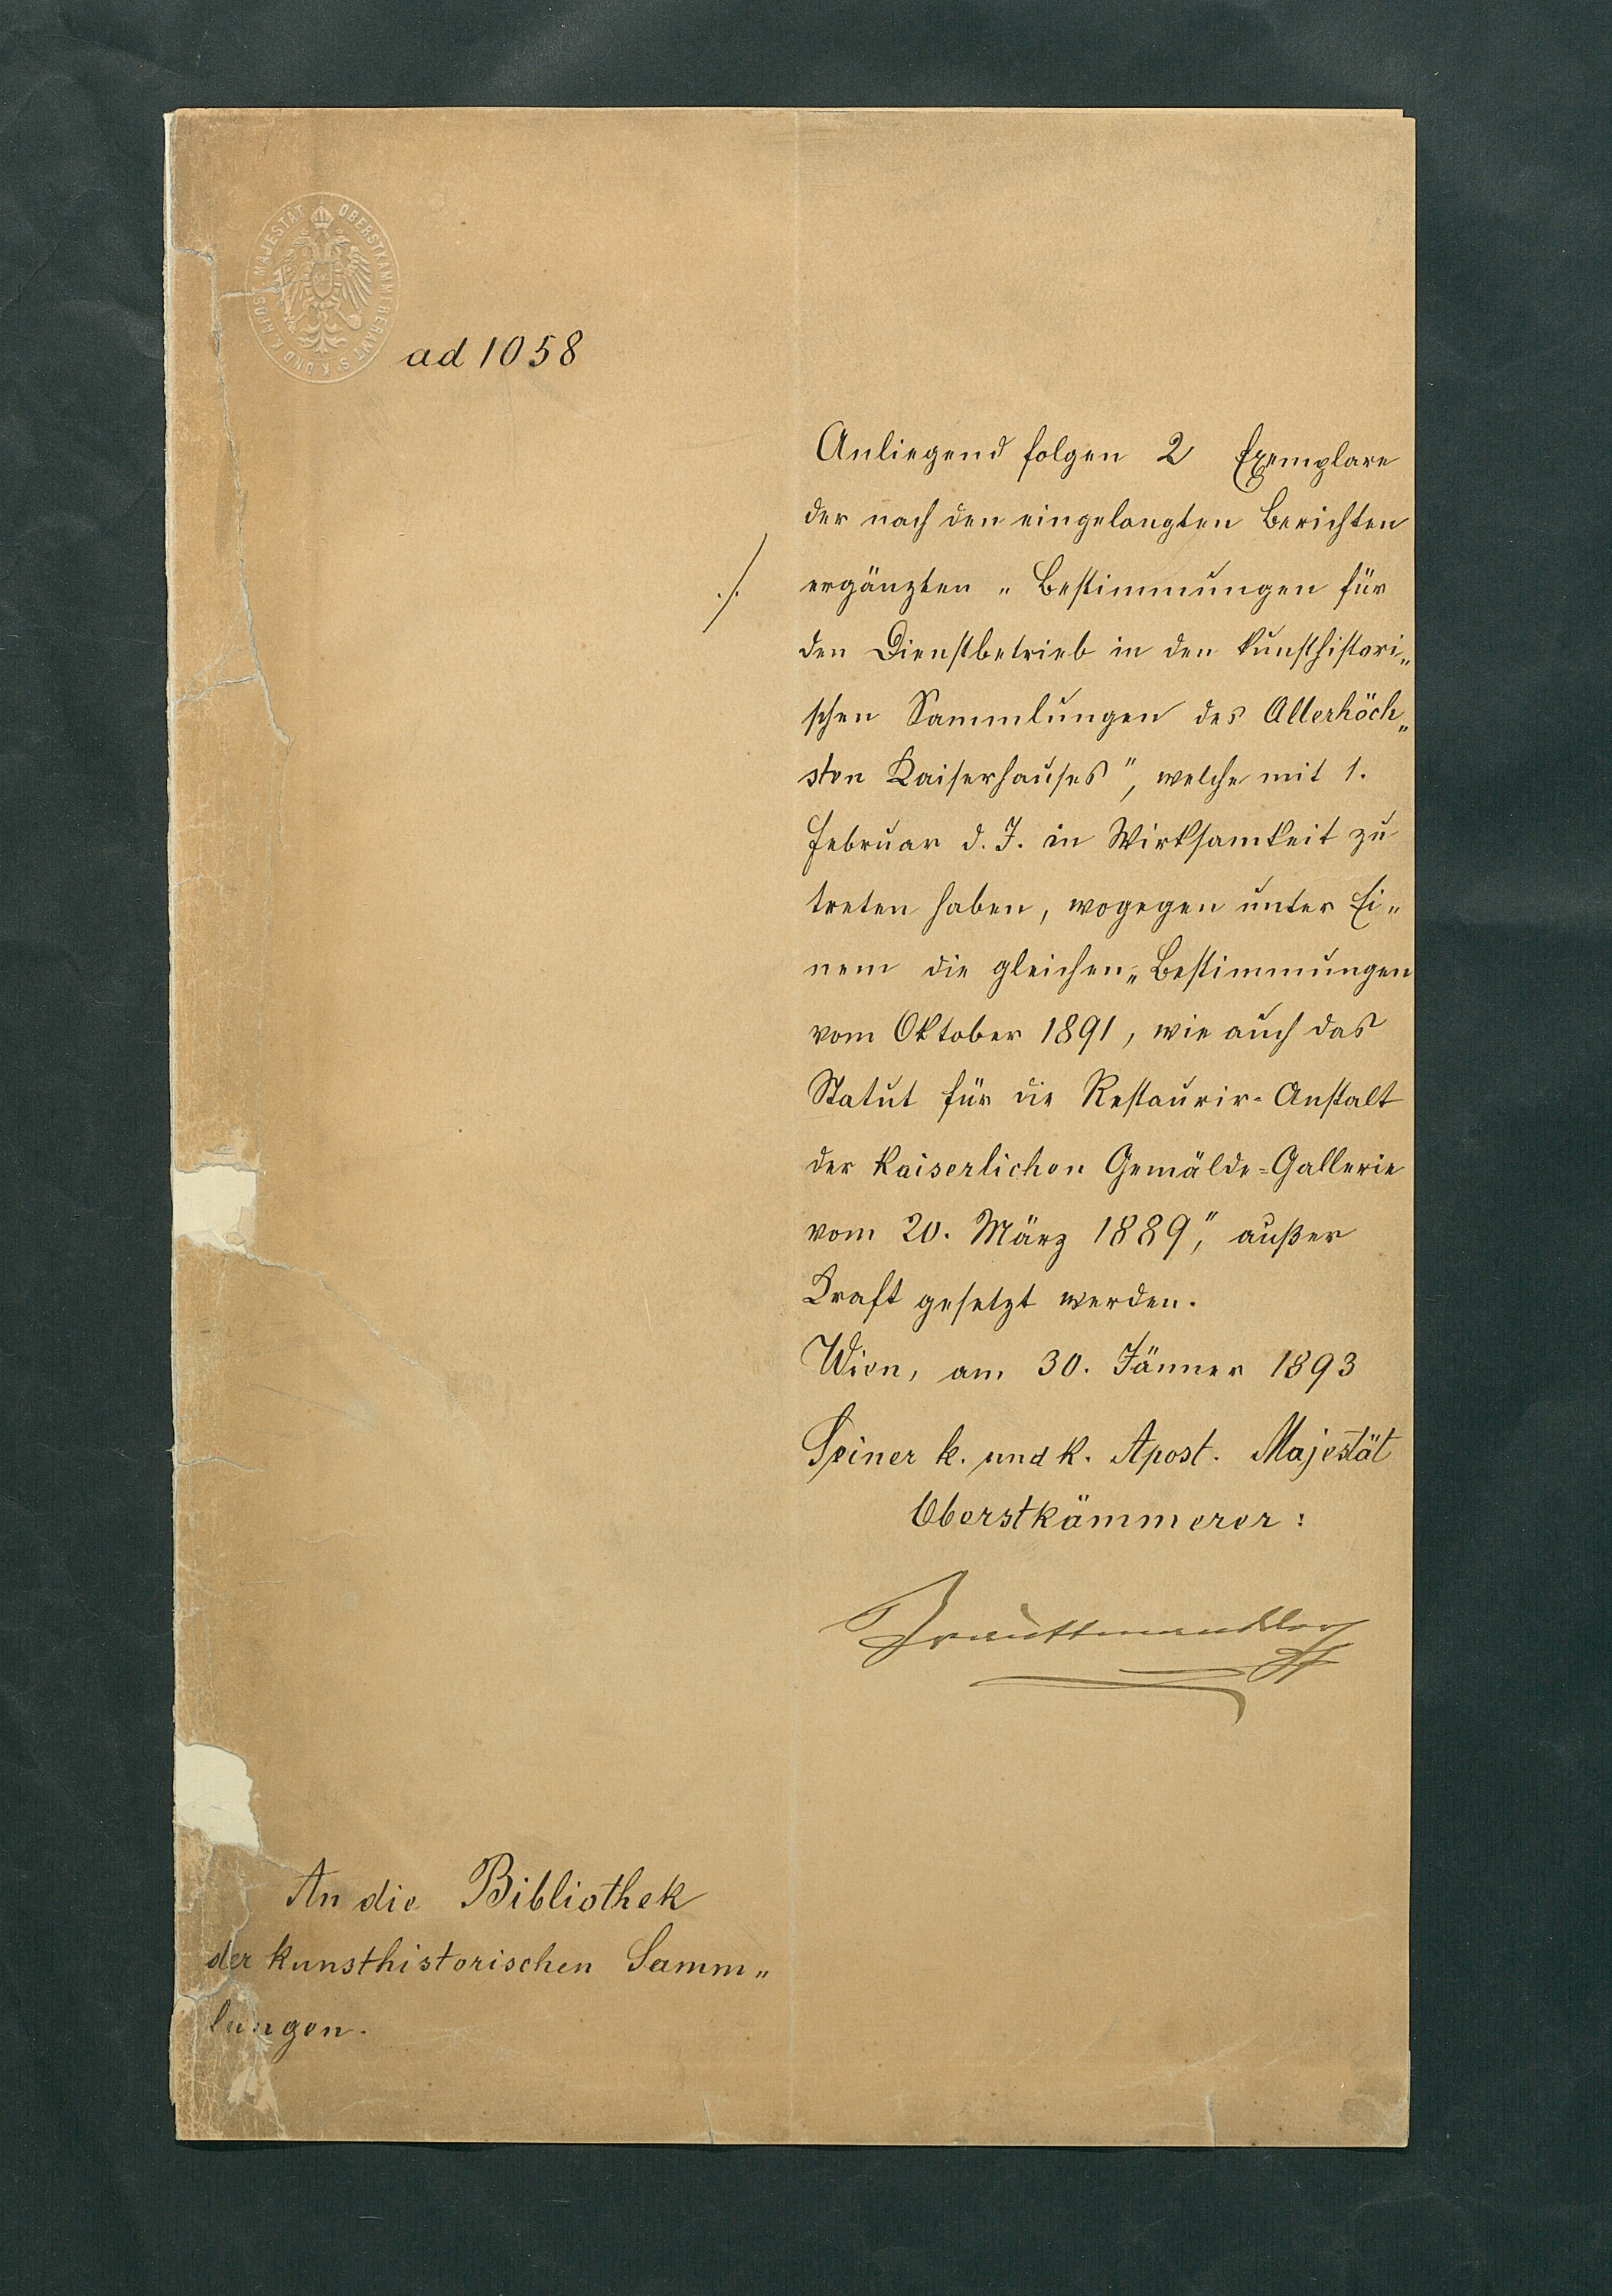 OBERSTKAMMERERAMT Sr K. UND K. APOST. MAJESTÄT
ad 1058
Anliegend folgen 2 Exemplare
der nach den eingelangten Berichten
./. ergänzten „Bestimmungen für
den Dienstbetrieb in den kunsthistori„
schen Sammlungen des Allerhöch„
sten Kaiserhauses", welche mit 1.
Februar d. J. in Wirksamkeit zu
treten haben, wogegen unter Ei„
nem die gleichen „Bestimmungen
vom Oktober 1891, wie auch das
Statut für die Restaurir-Anstalt
der kaiserlichen Gemälde=Gallerie
vom 20. März 1889," außer
Kraft gesetzt werden.
Wien, am 30. Jänner 1893
Seiner k. und k. Apost. Majestät
Oberstkämmerer:
Trauttmansdorff
An die Bibliothek
der kunsthistorischen Samm„
lungen.